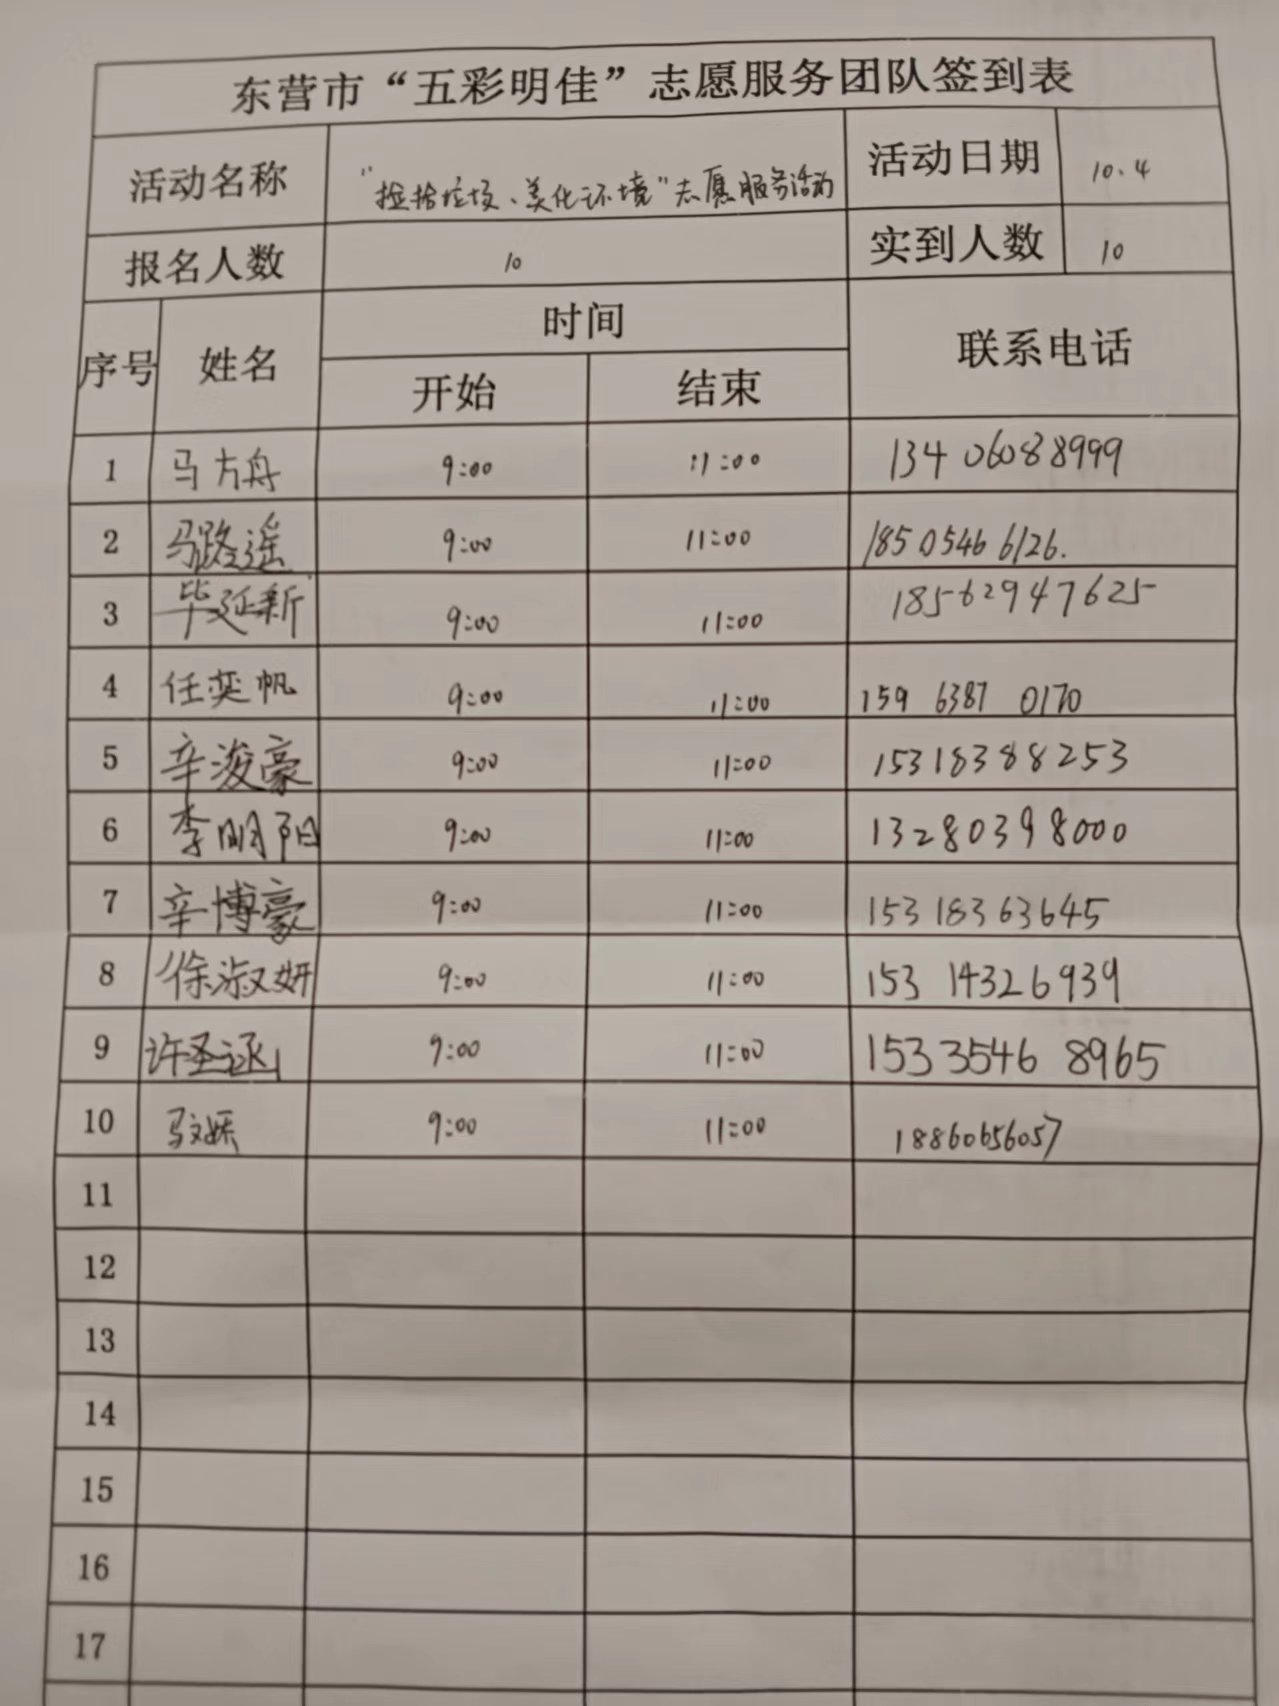 东营市“五彩明佳”志愿服务团队签到表
活动名称 “捡拾垃圾、美化环境”志愿服务活动 活动日期 10.4
报名人数 10 实到人数 10
序号 姓名 时间 联系电话
开始 结束
1 马方舟 9:00 11:00 13406088999
2 马路遥 9:00 11:00 185 0546 6126.
3 毕延新 9:00 11:00 18562947625
4 任奕帆 9:00 11:00 159 6387 0170
5 辛浚豪 9:00 11:00 15318388253
6 李明阳 9:00 11:00 13280398000
7 辛博豪 9:00 11:00 15318363645
8 徐淑妍 9:00 11:00 153 14326939
9 许圣 9:00 11:00 153 3546 8965
10 马文 9:00 11:00 18860656057
11
12
13
14
15
16
17